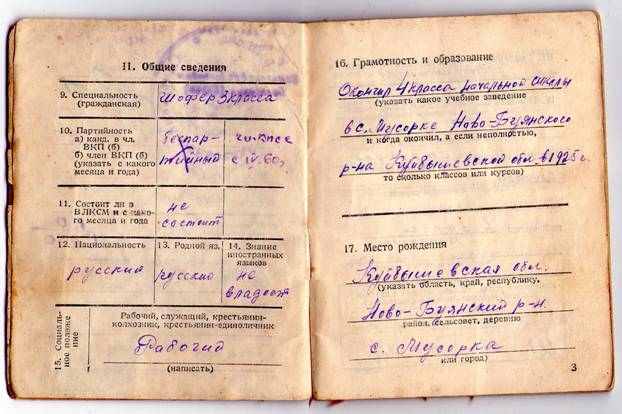 II. Общие сведения
9. Специальность
(гражданская)
шофер 3 класса
10. Партийность
а) канд. в чл.
ВКП (б)
б) член ВКП (б)
(указать с какого
месяца и года)
беспар-
тийный
чл. КПСС
с IV.60г.
11. Состоит ли в
ВЛКСМ и с како-
го месяца и года
не
состоит
12. Национальность
русский
13. Родной яз.
русский
14. Знание
иностранных
языков
не
владеет
15. Социаль-
ное положе-
ние
Рабочий, служащий, крестьянин-
колхозник, крестьянин-единоличник
Рабочий
(написать)
16. Грамотность и образование
Окончил 4 класса начальной школы
(указать какое учебное заведение
в с. Мусорке Ново-Буянского
и когда окончил, а если неполностью,
р-на Куйбышевской обл. в 1925 г.
то сколько классов или курсов)
17. Место рождения
Куйбышевская обл.
(указать область, край, республику,
Ново-Буянский р-н
район, сельсовет, деревню
с. Мусорка
или город)
3